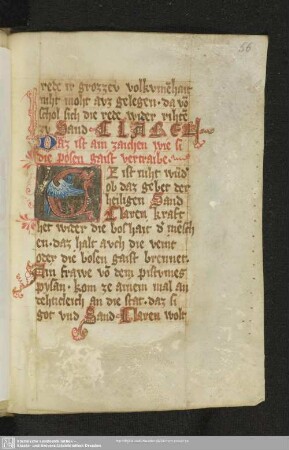 56
rede ir grozzev volkvmēhait
niht mohr avz gelegen · da vō
schol sich die rede wider rihtē
zv Sand CLAREN
Daz ist ain zaichen wie si
die posen gaist vertraibe
Z ist niht wūd
ob daz geber der
heiligen Sand
Claren kraft
her wider die boshait d' mēsch
en · daz halt auch die veint
oder die bosen gaist brennet
Ain frawe vō dem pistvmes
pysan · kom ze ainem mal an
dehticleich an die stat · daz si
got vnd Sand Claren wolt